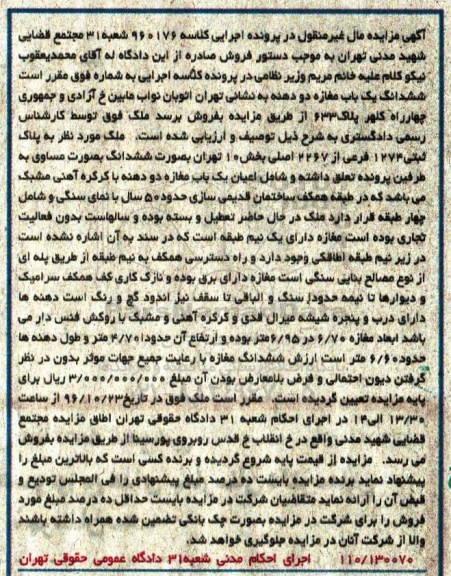 آگهی مزایده مال غیرمنقول در پرونده اجرایی کلاسه ۹۶۰۱۷۶ شعبه۳۱ مجتمع قضایی
شهید مدنی تهران به موجب دستور فروش صادره از این دادگاه له آقای محمدیعقوب
نیکو کلام علیه خانم مریم وزیر نظامی در پرونده کلاسه اجرایی به شماره فوق مقرر است
ششدانگ یک باب مغازه دو دهنه به نشانی تهران اتوبان نواب مابین خ آزادی و جمهوری
چهارراه کلهر پلاک۶۳۳ از طریق مزایده بفروش برسد ملک فوق توسط کارشناس
رسمی دادگستری به شرح ذیل توصیف و ارزیابی شده است. ملک مورد نظر به پلاک
ثبتی۱۲۷۴ فرعی از ۲۲۶۷ اصلی بخش۱۰ تهران بصورت ششدانگ بصورت مساوی به
طرفین پرونده تعلق داشته و شامل اعیان یک باب مغازه دو دهنه با کرکره آهنی مشبک
می باشد که در طبقه همکف ساختمان قدیمی سازی حدود۵۰ سال با نمای سنگی و شامل
چهار طبقه قرار دارد ملک در حال حاضر تعطیل و بسته بوده و سالهاست بدون فعالیت
تجاری بوده است مغازه دارای یک نیم طبقه است که در سند به آن اشاره نشده است
در زیر نیم طبقه اطاقکی وجود دارد و راه دسترسی همکف به نیم طبقه از طریق پله ای
از نوع مصالح بنایی سنگی است مغازه دارای برق بوده و نازک کاری کف همکف سرامیک
و دیوارها تا نیمه حدودا سنگ و الباقی تا سقف نیز اندود گچ و رنگ است دهنه ها
دارای درب و پنجره شیشه میرال قدی و کرکره آهنی و مشبک با روکش فنس دار می
باشد ابعاد مغازه ۶/۷۰ در ۶/۹۵متر بوده و ارتفاع آن حدودا۴/۷۰ متر و طول دهنه ها
حدود۶/۶۰ متر است ارزش ششدانگ مغازه با رعایت جمیع جهات موثر بدون در نظر
گرفتن دیون احتمالی و فرض بلامعارض بودن آن مبلغ ۳/۰۰۰/۰۰۰/۰۰۰ ریال برای
پایه مزایده تعیین گردیده است. مقرر است ملک فوق در تاریخ۹۶/۱۰/۲۳ از ساعت
۱۳/۳۰ الی۱۴ در اجرای احکام شعبه ۳۱ دادگاه حقوقی تهران اطاق مزایده مجتمع
قضایی شهید مدنی واقع در خ انقلاب خ قدس روبروی پورسینا از طریق مزایده بفروش
می رسد. مزایده از قیمت پایه شروع گردیده و برنده کسی است که بالاترین مبلغ را
پیشنهاد نماید برنده مزایده بایست ده درصد مبلغ پیشنهادی را فی المجلس تودیع و
قبض آن را ارائه نماید متقاضیان شرکت در مزایده بایست حداقل ده درصد مبلغ مورد
فروش را برای شرکت در مزایده بصورت چک بانکی تضمین شده همراه داشته باشند
والا از شرکت آنان در مزایده جلوگیری خواهد شد.
۱۱۰/۱۳۰۰۷۰ اجرای احکام مدنی شعبه۳۱ دادگاه عمومی حقوقی تهران